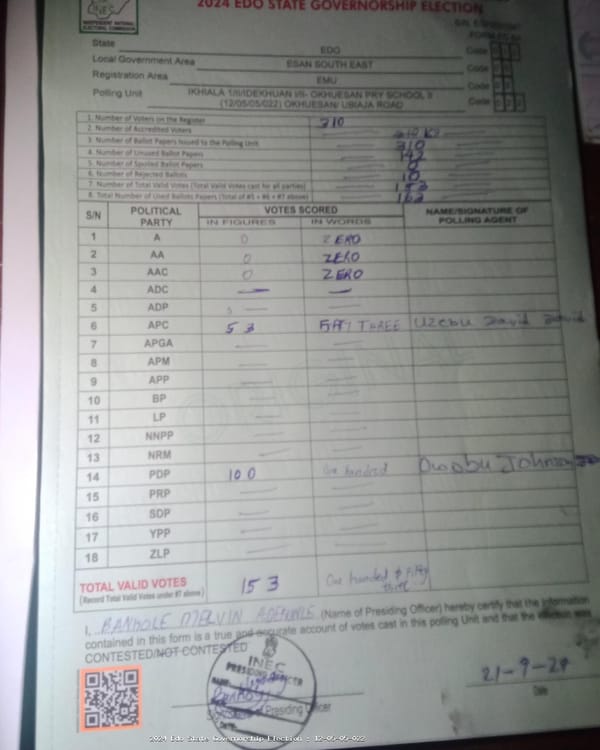 2024 EDO STATE GOVERNORSHIP ELECTION
INEC
INDEPENDENT NATIONAL ELECTORAL COMMISSION
State EDO Code
Local Government Area ESAN SOUTH EAST Code
Registration Area EMU Code
Polling Unit IKHIALA 1/II/IDEKHUAN I/II- OKHUESAN PRY SCHOOL II Code
(12/05/05/022) OKHUESAN/ UBIAJA ROAD
1. Number of Voters on the Register 310
2. Number of Accredited Voters
3. Number of Ballot Papers Issued to the Polling Unit 310
4. Number of Unused Ballot Papers 142
5. Number of Spoiled Ballot Papers 0
6. Number of Rejected Ballots 10
7. Number of Total Valid Votes (Total Valid Votes cast for all parties) 153
8. Total Number of Used Ballots Papers (Total of #5 + #6 + #7 above) 163
S/N POLITICAL PARTY VOTES SCORED NAME/SIGNATURE OF POLLING AGENT
IN FIGURES IN WORDS
1 A 0 ZERO
2 AA 0 ZERO
3 AAC 0 ZERO
4 ADC — —
5 ADP
6 APC 53 FIFTY THREE Uzebu David David
7 APGA
8 APM
9 APP
10 BP
11 LP
12 NNPP
13 NRM
14 PDP 100 One hundred Owobu Johnson
15 PRP
16 SDP
17 YPP
18 ZLP
TOTAL VALID VOTES 153 One hundred & Fifty three
(Record Total Valid Votes under #7 above)
I, BANKOLE MELVIN ADEKUNLE (Name of Presiding Officer) hereby certify that the information
contained in this form is a true and accurate account of votes cast in this polling Unit and that the election was
CONTESTED/NOT CONTESTED
INEC
Presiding Officer
21-9-24
Date
2024 Edo State Governorship Election : 12-05-05-022